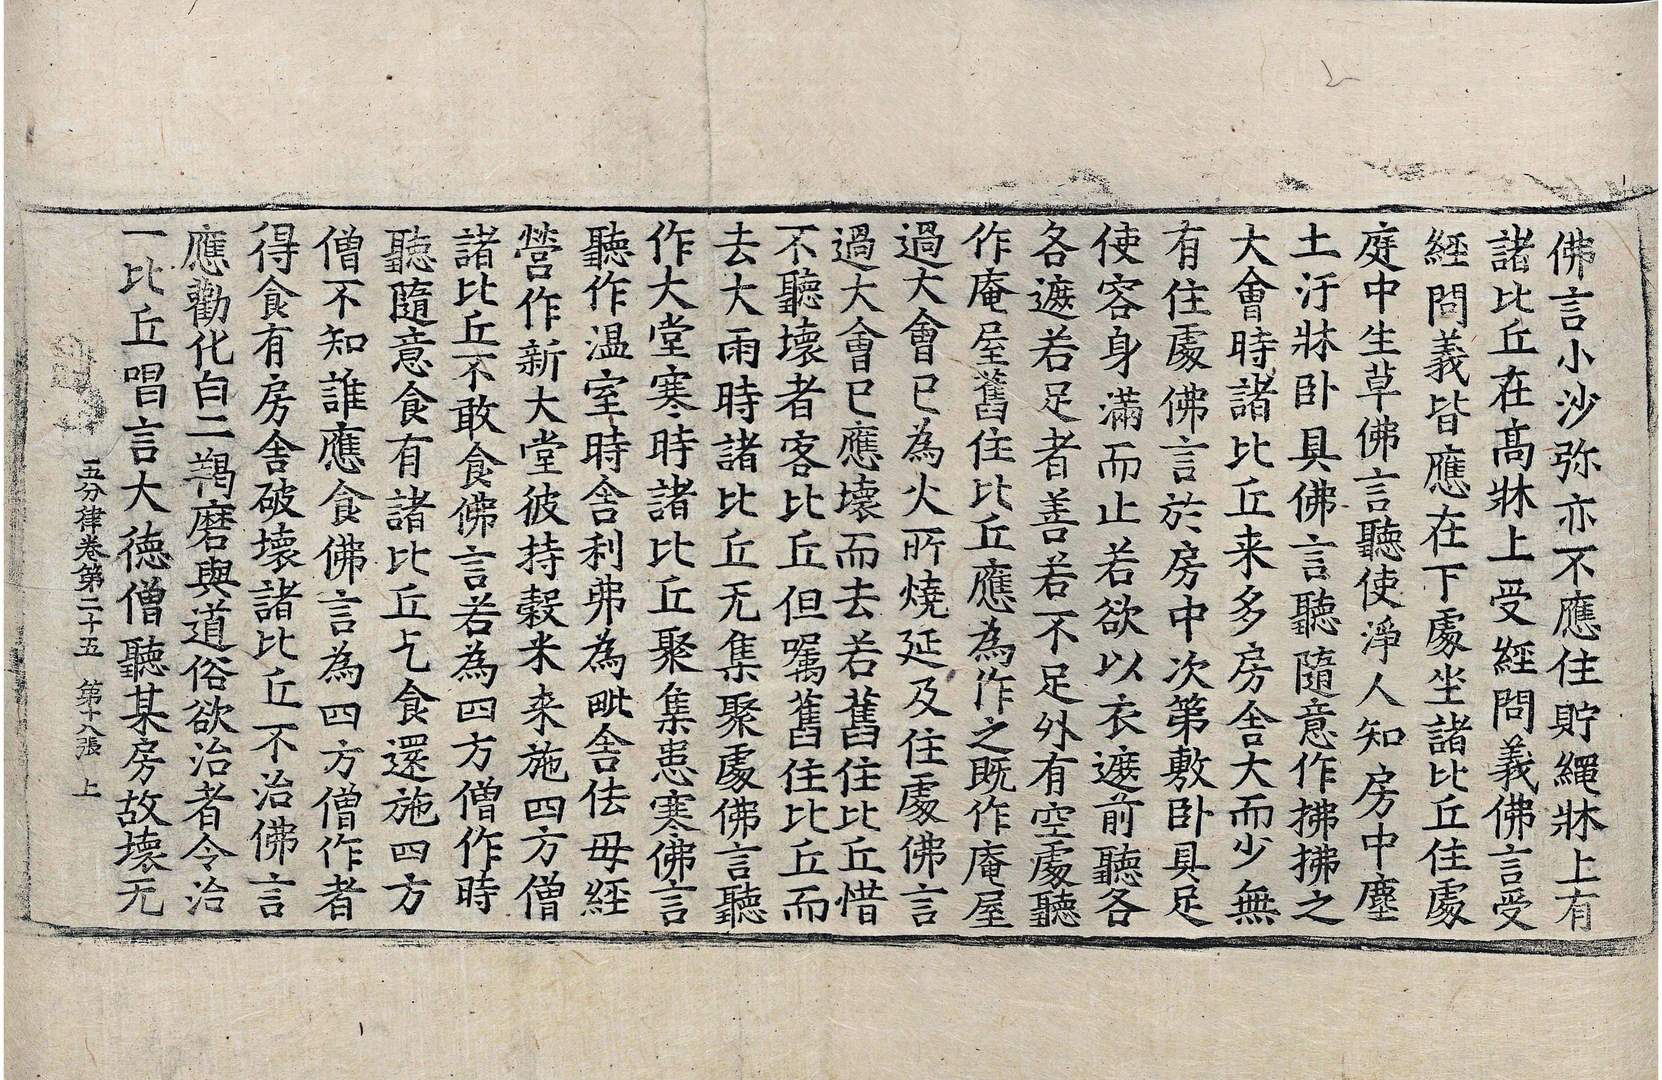 佛言小沙弥亦不應住貯繩牀上有
諸比丘在高牀上受經問義佛言受
經問義皆應在下處坐諸比丘住處
庭中生草佛言聽使淨人知房中塵
土汙牀卧具佛言聽隨意作拂拂之
大會時諸比丘来多房舍大而少無
有住處佛言於房中次第敷卧具足
使容身滿而止若欲以衣遮前聽各
各遮若足者善若不足外有空處聽
作庵屋舊住比丘應為作之既作庵屋
過大會已為火所燒延及住處佛言
過大會已應壞而去若舊住比丘惜
不聽壞者客比丘但囑舊住比丘而
去大雨時諸比丘无集聚處佛言聽
作大堂寒時諸比丘聚集患寒佛言
聽作温室時舍利弗為毗舍佉母經
營作新大堂彼持穀米来施四方僧
諸比丘不敢食佛言若為四方僧作時
聽隨意食有諸比丘乞食還施四方
僧不知誰應食佛言為四方僧作者
得食有房舍破壞諸比丘不治佛言
應勸化白二羯磨與道俗欲治者令治
一比丘唱言大德僧聽某房故壞无
五分律卷第二十五 第十八張 上